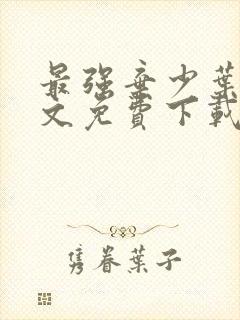 最强弃少叶
文免费下载
隽眷叶子